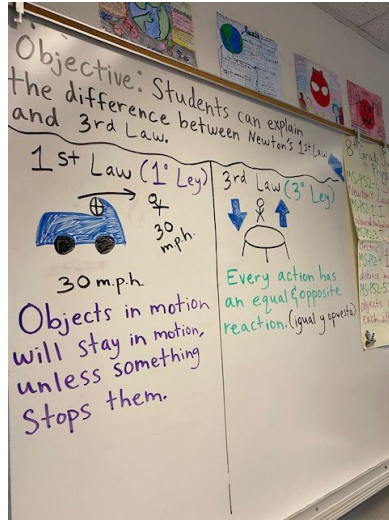 Objective: Students can explain
the difference between Newton's 1st Law
and 3rd Law.
1st Law (1° Ley)
30
mph.
30 m.p.h.
Objects in motion
will stay in motion,
unless something
stops them.
3rd Law (3° Ley)
Every action has
an equal & opposite
reaction. (igual y opuesta)
8th Grade